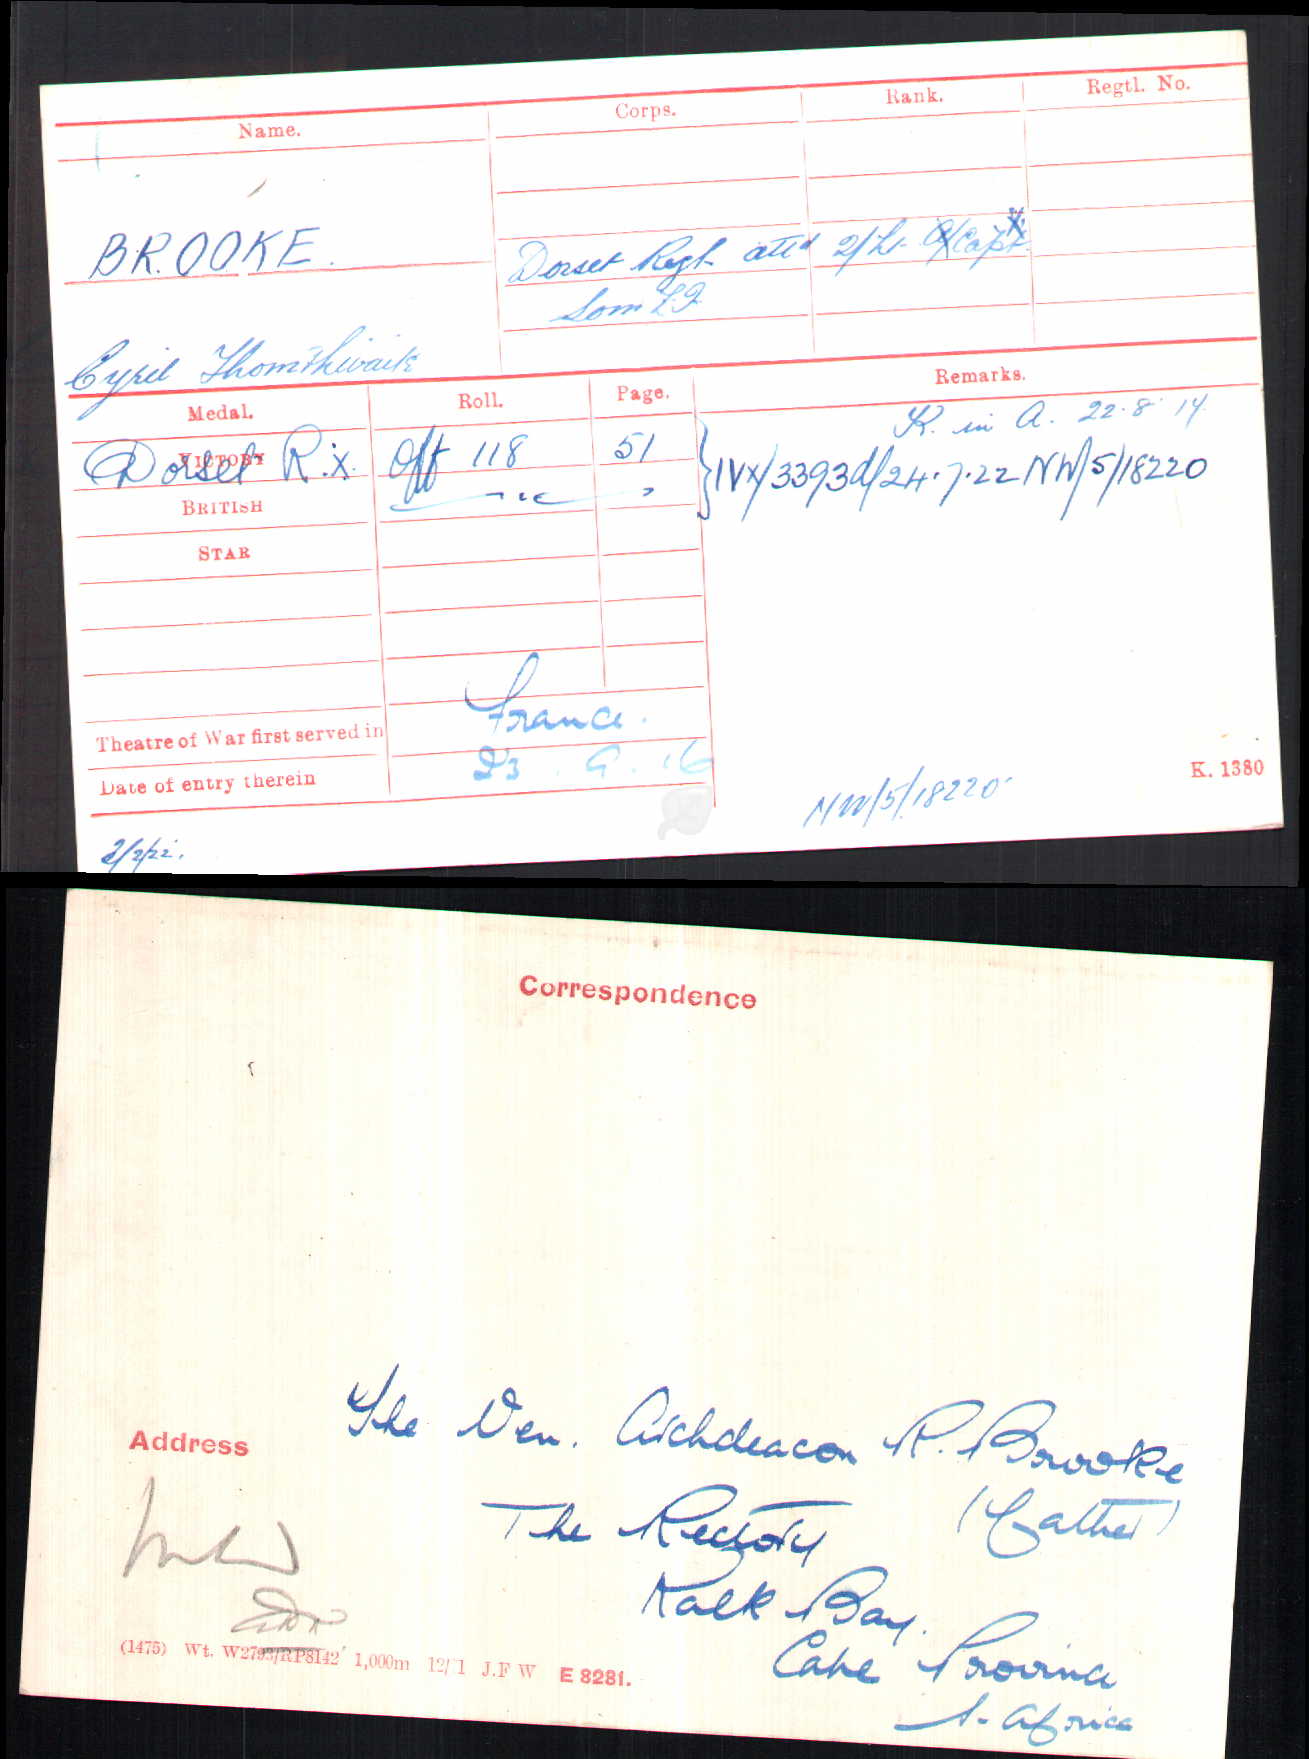 Name. Corps. Rank. Regtl. No.
BROOKE. Dorset Regt attd 2/Lt A/Capt X
Som L.I.
Cyril Thomthwaite
Medal. Roll. Page. Remarks.
K. in A. 22.8.17
VICTORY Dorset R.X. Off 118 51 } IVX/3393d/24.7.22 NW/5/18220
BRITISH
STAR
Theatre of War first served in France.
Date of entry therein 23.9.16
K. 1380
NW/5/18220
2/2/22.
Correspondence
Address
The Ven. Archdeacon R. Brooke
The Rectory (Father)
Kalk Bay.
Cape Province
S. Africa
(1475) Wt. W2793/RP8142 1,000m 12/ 1 J.F W E 8281.